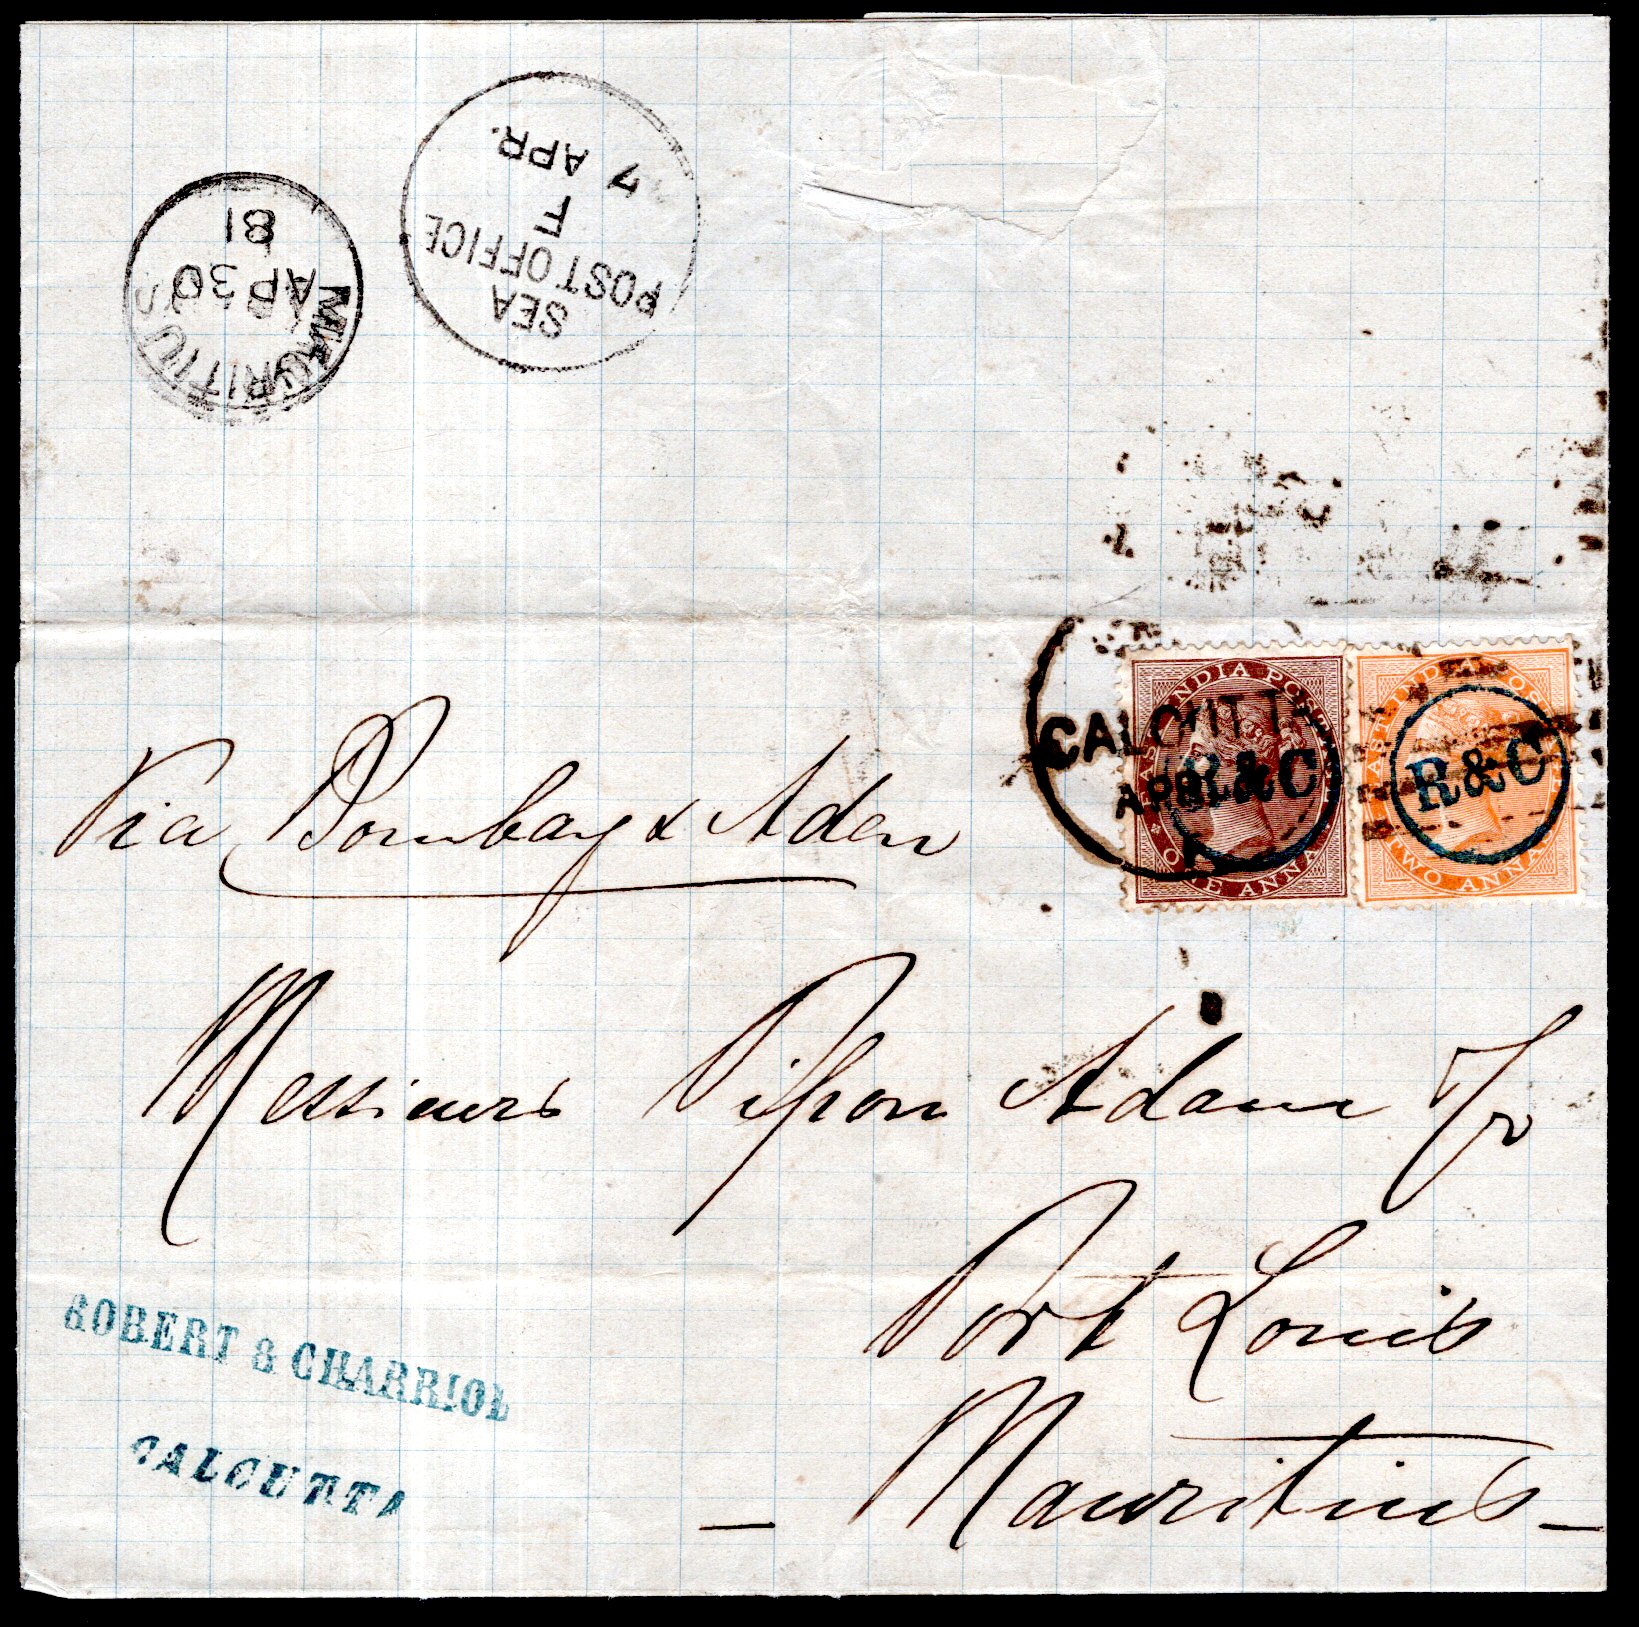 SEA
POST OFFICE
F
7 APR.
MAURITIUS
AP 30
81
EAST INDIA POSTAGE
ONE ANNA
EAST INDIA POSTAGE
TWO ANNAS
CALCUTTA
APR
R&C
R&C
Via Bombay & Aden
Messieurs Pipon Adam &
Port Louis
Mauritius
ROBERT & CHARRIOL
CALCUTTA